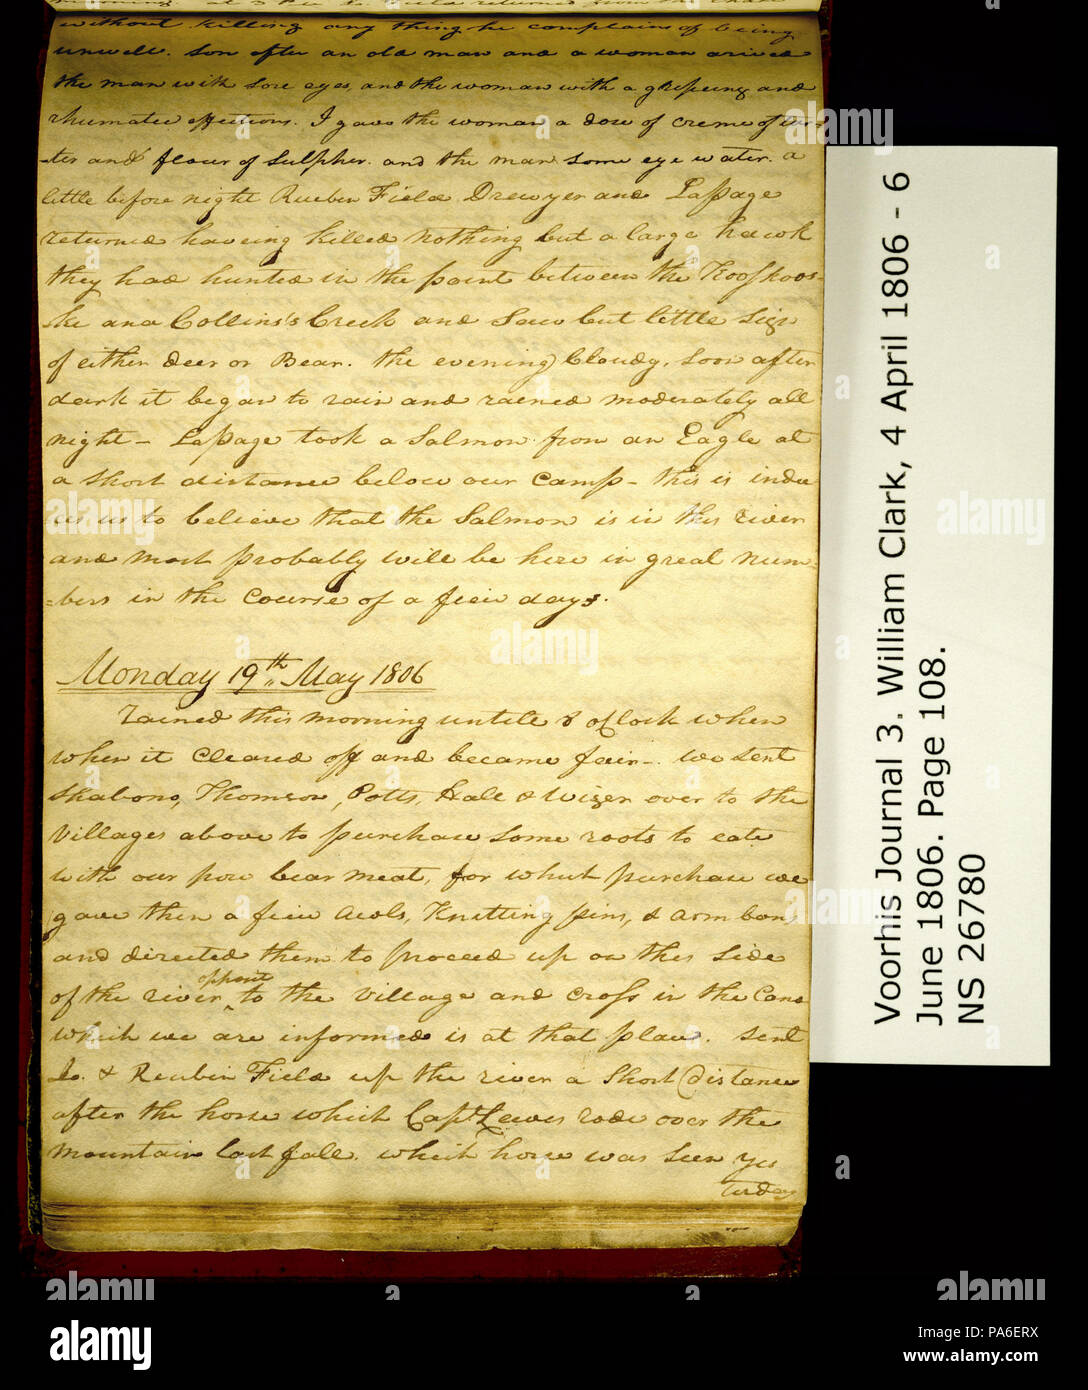 without killing any thing he complains of being
unwell. Son after an old man and a woman arived
the man with Sore eyes, and the woman with a gripeing and
rhumatic effections. I gave the woman a dose of creme of tar-
-ter and flour of Sulpher. and the man Some eye water. a
little before night Rueben Field Drewyer and Lapage
returned haveing killed nothing but a large hawk
they had hunted in the point between the Kooskoos
ke and Collins's Creek and Saw but little Sign
of either deer or Bear. the evening Cloudy, Soon after
dark it began to rain and rained moderately all
night - Lapage took a Salmon from an Eagle at
a Short distance below our Camp - this is induc
us to believe that the Salmon is in this river
and most probably will be here in great num-
=bers in the Course of a fiew days.
Monday 19th May 1806
rained this morning untile 8 oClock when
when it Cleared off and became fair - we Sent
Shabono, Thomson, Potts, Hall & Wizer over to the
Villages above to purchase Some roots to eate
with our pore bear meat, for which purchase we
gave then a fiew awls, Knitting pins, & arm bans
and directed them to proceed up on this Side
opposit
of the river to the Village and Cross in the Cano
which we are informed is at that place. Sent
Jo. & Reubin Field up the river a Short distance
after the horse which Capt Lewis rode over the
mountain last fall. which horse was Seen yes
terday
Voorhis Journal 3. William Clark, 4 April 1806 - 6
June 1806. Page 108.
NS 26780
alamy
a
Image ID: PA6ERX
www.alamy.com